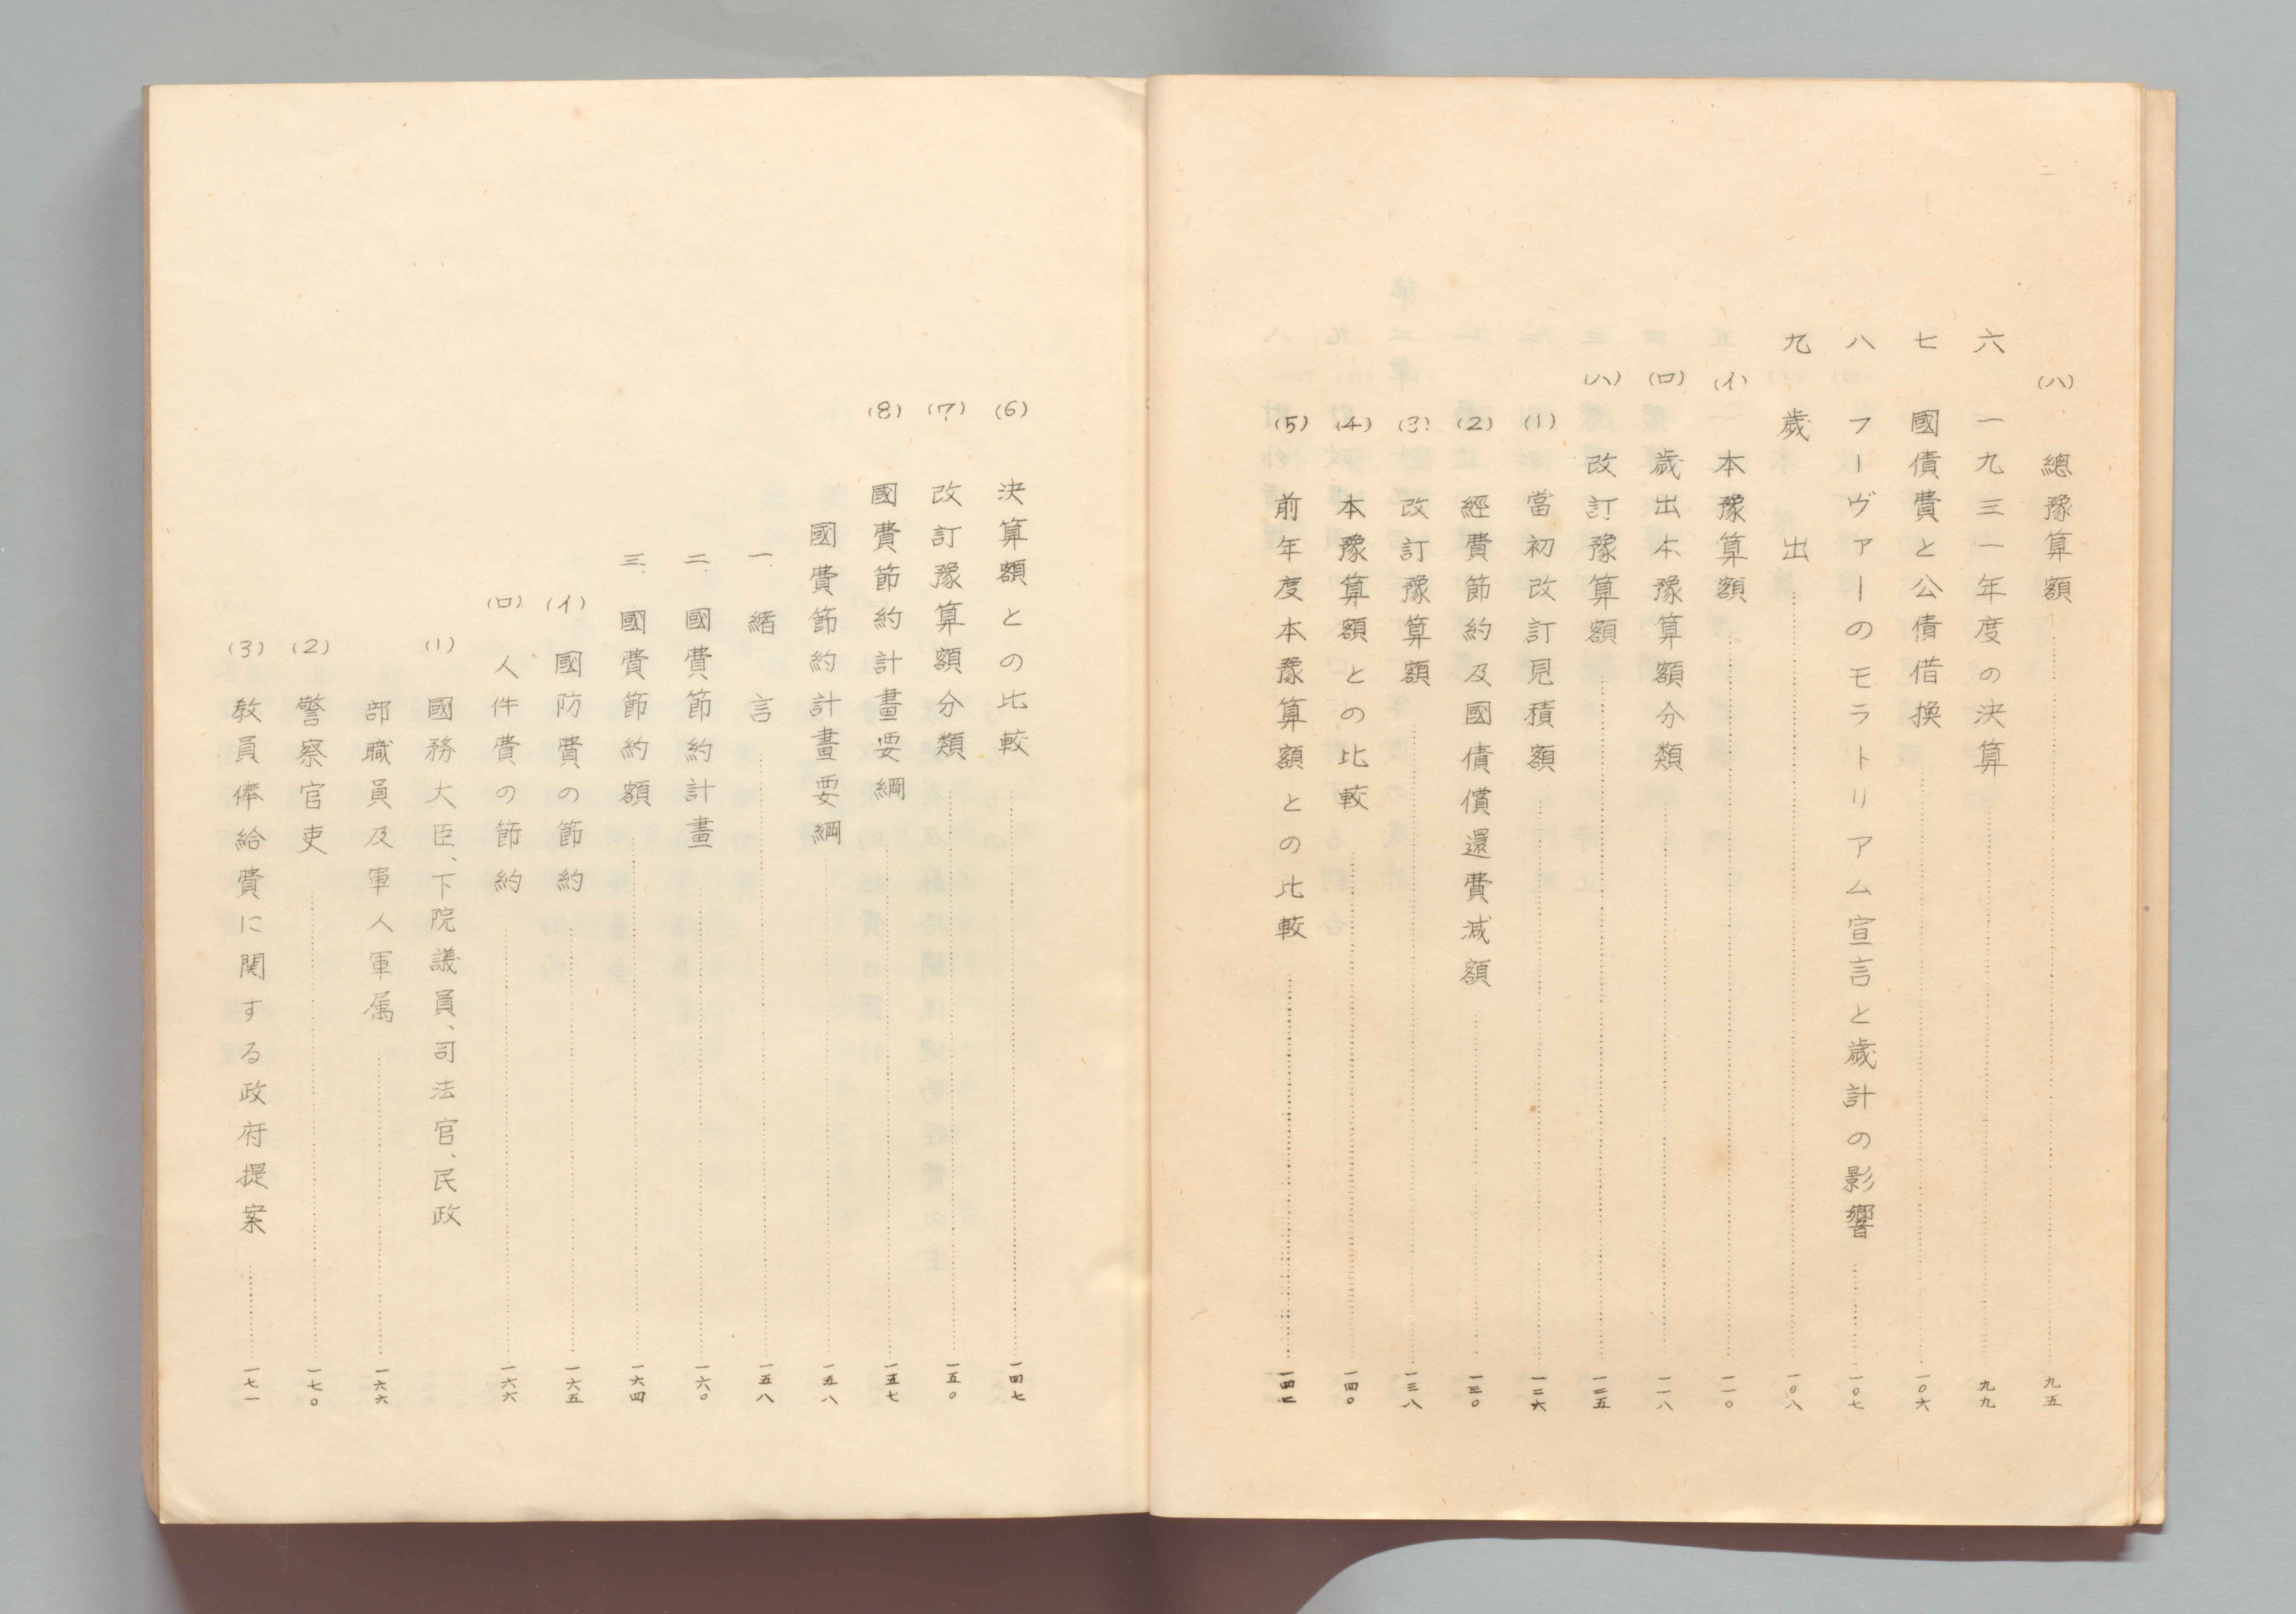 二
(ハ) 總豫算額……九五
六 一九三一年度の決算……九九
七 國債費と公債借換……一〇六
八 フーヴァーのモラトリアム宣言と歳計の影響……一〇七
九 歳出……一〇八
(イ) 本豫算額……一一〇
(ロ) 歳出本豫算額分類……一一八
(ハ) 改訂豫算額……一二五
(1) 當初改訂見積額……一二六
(2) 經費節約及國債償還費減額……一三〇
(3) 改訂豫算額……一三八
(4) 本豫算額との比較……一四〇
(5) 前年度本豫算額との比較
(6) 決算額との比較……一四七
(7) 改訂豫算額分類……一五〇
(8) 國費節約計畫要綱……一五七
國費節約計畫要綱……一五八
一、緒言……一五八
二、國費節約計畫……一六〇
三、國費節約額……一六四
(イ) 國防費の節約……一六五
(ロ) 人件費の節約……一六六
(1) 國務大臣、下院議員、司法官、民政
部職員及軍人軍属……一六六
(2) 警察官吏……一七〇
(3) 教員俸給費に関する政府提案……一七一